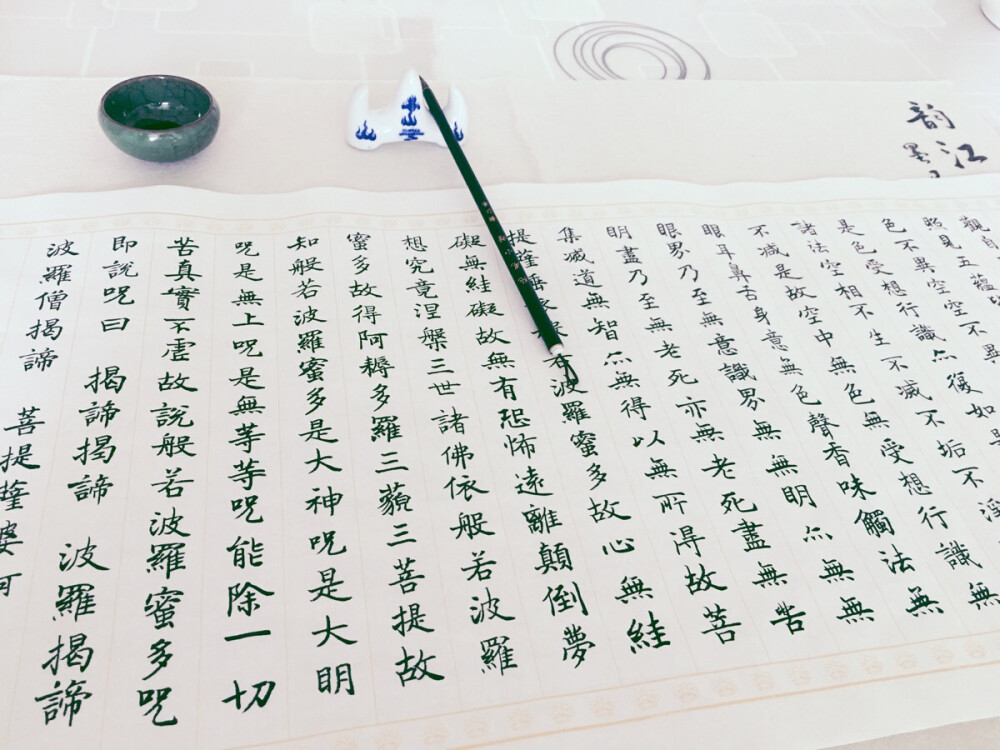 韵江
觀自
照見五蘊
色不異空空不異
是色受想行識亦復如是
諸法空相不生不滅不垢不淨
不減是故空中無色無受想行識無
眼耳鼻舌身意無色聲香味觸法無
眼界乃至無意識界無無明亦無無
明盡乃至無老死亦無老死盡無苦
集滅道無智亦無得以無所得故菩
提薩波羅蜜多故心無絓
礙無絓礙故無有恐怖遠離顛倒夢
想究竟涅槃三世諸佛依般若波羅
蜜多故得阿耨多羅三藐三菩提故
知般若波羅蜜多是大神咒是大明
咒是無上咒是無等等咒能除一切
苦真實不虛故說般若波羅蜜多咒
即說咒曰 揭諦揭諦 波羅揭諦
波羅僧揭諦 菩提薩婆訶